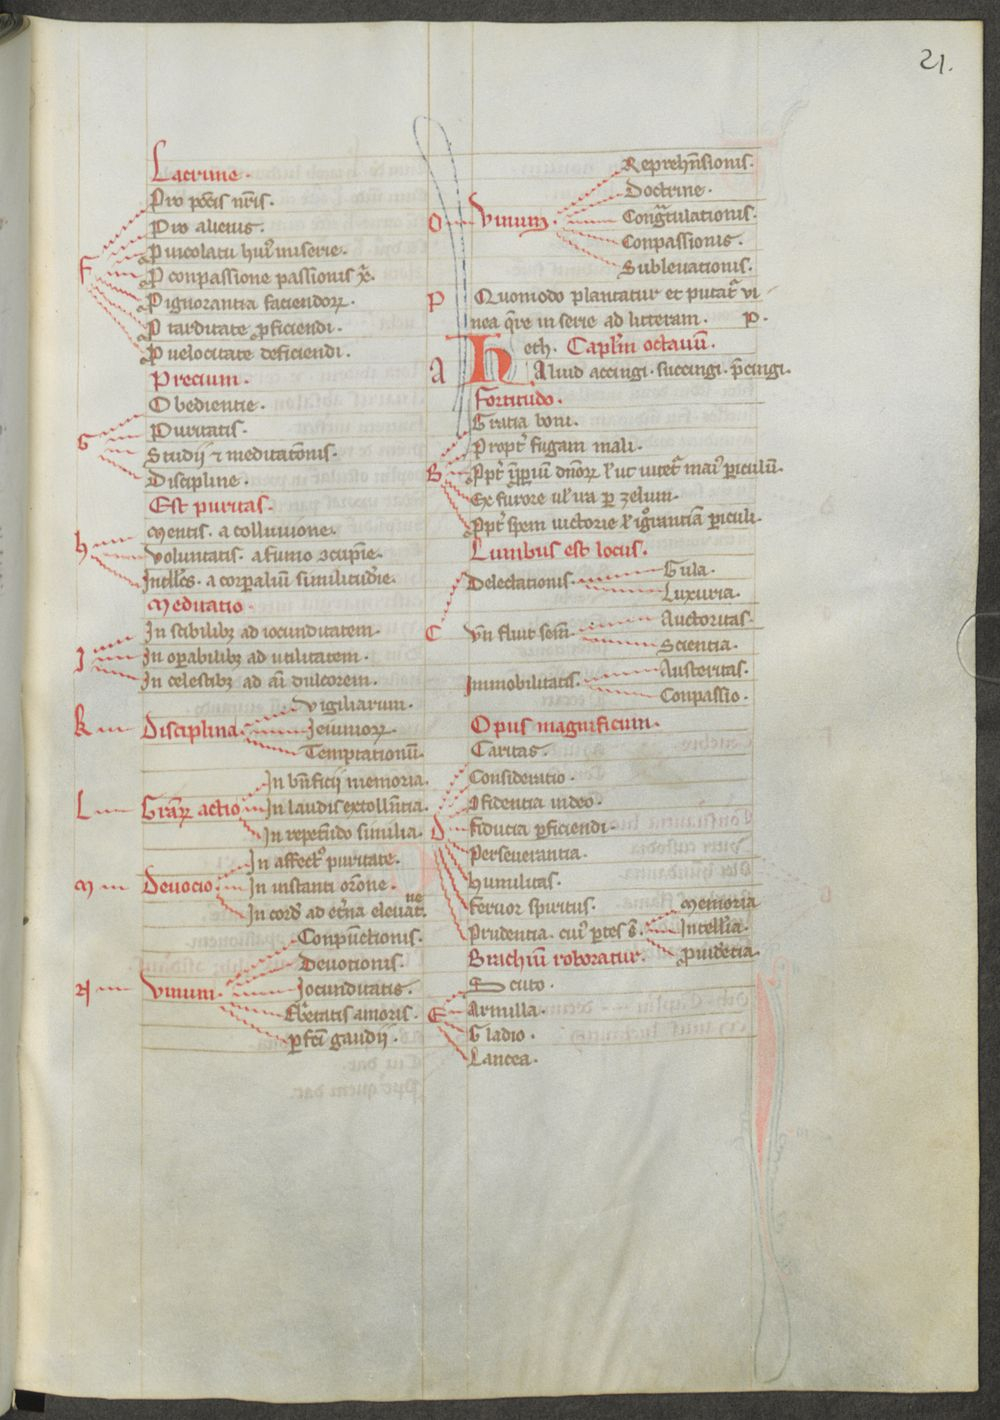 21.
Lacrime.
F
Pro pctis nris.
Pro alienis.
P incolatu hui miserie.
P conpassione passionis x.
P ignorantia faciendor.
P tarditate pficiendi.
P velocitate deficiendi.
Precium.
G
Obedientie.
Puritatis.
Studii et meditatonis.
Discipline.
Est puritas.
h
Mentis. a colluuione.
Voluntatis. a fumo
Intllcs. a corpalium similitudie.
Meditatio.
I
In scibilib3 ad iocunditatem.
In opabilib3 ad utilitatem.
In celestib3 ad dulcorem.
K Disciplina
Vigiliarum.
Ieiunior.
Temptationu.
L Gra actio
In bnficii memoria.
In laudis extollntia.
In repetendo similia.
M Deuocio
In affect puritate.
In instanti orone.
In cord ad etna eleuat.
Conpunctionis.
Deuotionis.
Vinum.
Iocunditatis.
Ebetatis amoris.
pfci gaudii.
O Vinum.
Reprehnsionis.
Doctrine.
Congtulationis.
Conpassionis.
Subleuationis.
P Quomodo plantatur et putat vi
nea qre in serie ad litteram. P.
Heth. Caplm octauu.
A Aliud accingi. succingi. pcingi.
Fortitudo.
B
Gratia boni.
Propt fugam mali.
Ex furore ul ira p zelum.
Ppt spem uictorie l igrantiam piculi.
Lumbus est locus.
C
Delectationis.
Gula.
Luxuria.
Vn fluit sem.
Auctoritas.
Scientia.
Immobilitatis.
Austeritas.
Conpassio.
Opus magnificum.
D
Caritas.
Consideratio.
Fiducia pficiendi.
Perseuerantia.
Humilitas.
Feruor spiritus.
Prudentia. cui ptes s.
Memoria
Intellia.
Puidetia.
Brachiu roboratur.
E
Scuto.
Armilla.
Gladio.
Lancea.